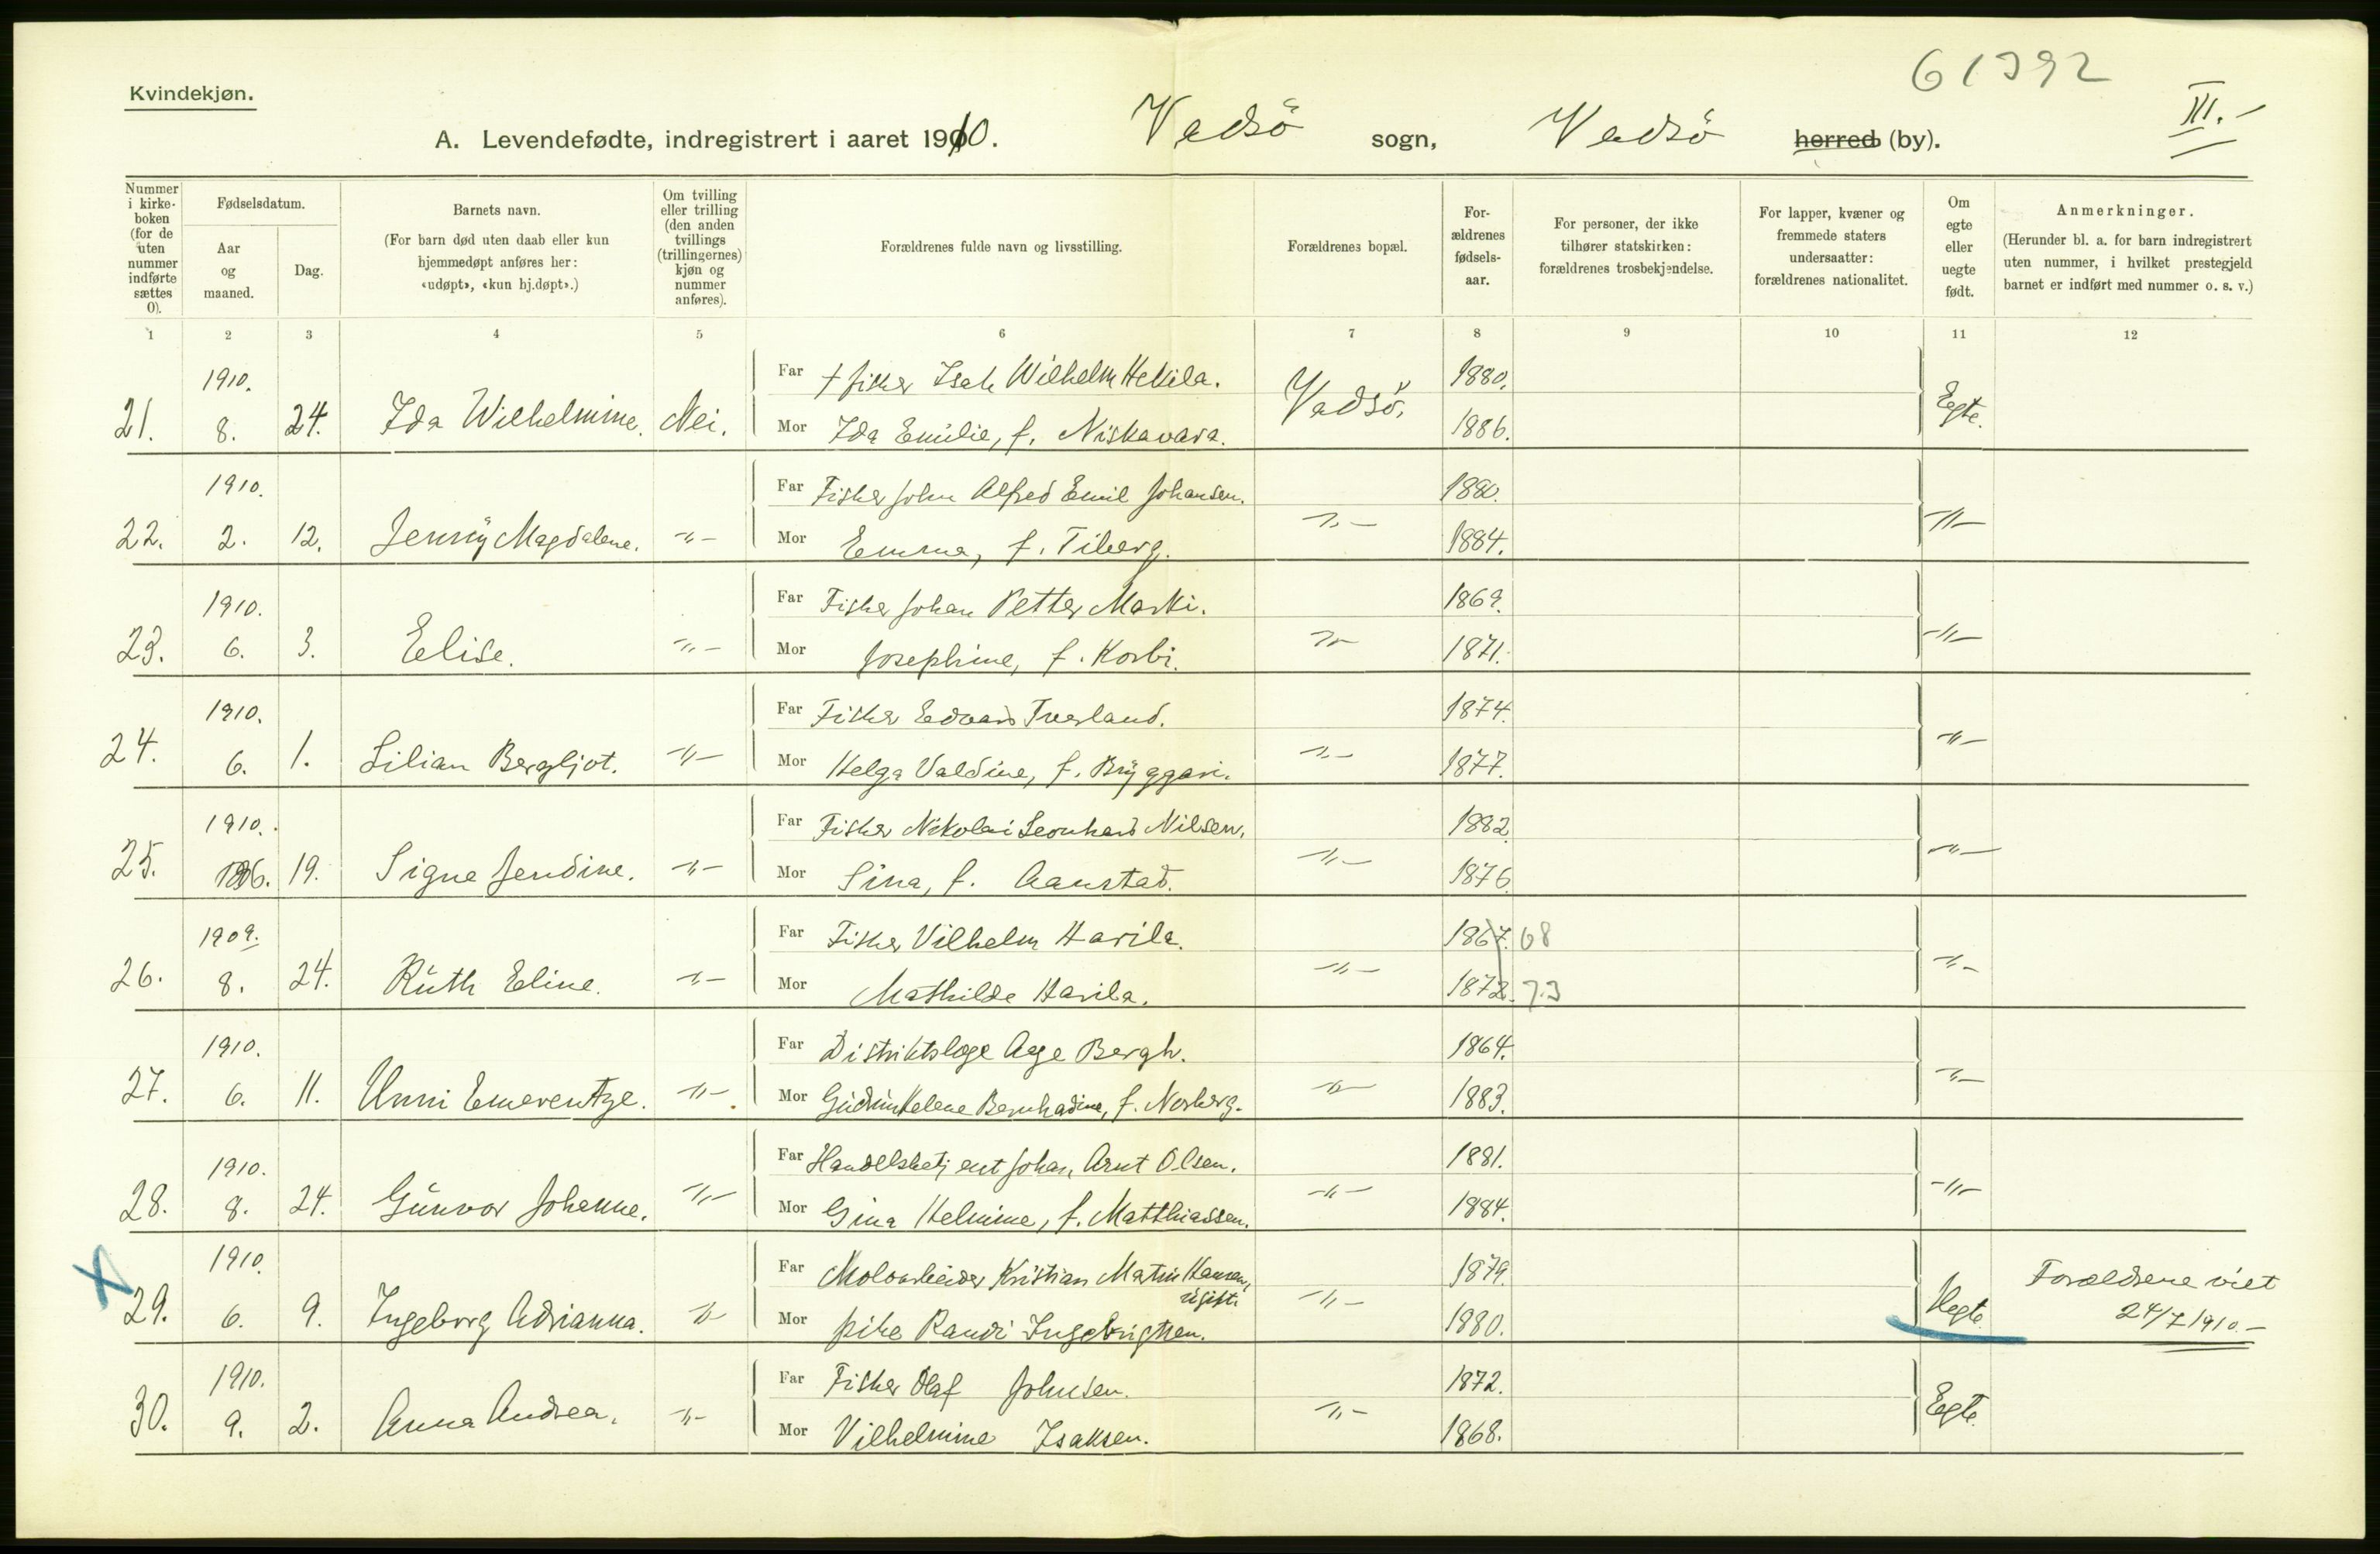 61392
Kvindekjøn.
III.-
A. Levendefødte, indregistrert i aaret 1910. Vadsö sogn, Vadsö herred (by).
Nummer i kirkeboken (for de uten nummer indførte sættes 0).
Fødselsdatum.
Aar og maaned.
Dag.
Barnets navn.
(For barn død uten daab eller kun hjemmedøpt anføres her: «udøpt», «kun hj.døpt».)
Om tvilling eller trilling (den anden tvillings (trillingernes) kjøn og nummer anføres).
Forældrenes fulde navn og livsstilling.
Forældrenes bopæl.
Forældrenes fødselsaar.
For personer, der ikke tilhører statskirken: forældrenes trosbekjendelse.
For lapper, kvæner og fremmede staters undersaatter: forældrenes nationalitet.
Om egte eller uegte født.
Anmerkninger.
(Herunder bl. a. for barn indregistrert uten nummer, i hvilket prestegjeld barnet er indført med nummer o. s. v.)
1 2 3 4 5 6 7 8 9 10 11 12
1910. Far † fisker Isak Wilhelm Heikila. Vadsö. 1880.
21. 8. 24. Ida Wilhelmine. Nei. Mor Ida Emilie, f. Niskavara. 1886. Egte.
1910. Far Fisker John Alfred Emil Johansen. 1880.
22. 2. 12. Jenny Magdalene. -"- Mor Emma, f. Tiberg. -"- 1884. -"-
1910. Far Fisker Johan Petter Marki. 1869.
23. 6. 3. Elise. -"- Mor Josephine, f. Korbi. -"- 1871. -"-
1910. Far Fisker Edvard Tverland. 1874.
24. 6. 1. Lilian Bergljot. -"- Mor Helga Valdine, f. Bryggari. -"- 1877. -"-
1910. Far Fisker Nikolai Leonhard Nilsen. 1882.
25. 6. 19. Signe Jendine. -"- Mor Sina, f. Aanstad. -"- 1876. -"-
1909. Far Fisker Vilhelm Harila. 1867. 68
26. 8. 24. Ruth Eline. -"- Mor Mathilde Harila. -"- 1872. 73 -"-
1910. Far Distriktslæge Aage Bergh. 1864.
27. 6. 11. Unni Emerentze. -"- Mor Gudrun Helene Bernhadine, f. Norberg. -"- 1883. -"-
1910. Far Handelsbetjent Johan Arnt Olsen. 1881.
28. 8. 24. Gunvor Johanne. -"- Mor Gina Helmine, f. Matthiassen. -"- 1884. -"-
1910. Far Moloarbeider Kristian Martin Hansen, 1879. Forældrene viet
29. 6. 9. Ingeborg Adrianna. -"- Mor pike Randi Ingebrigtsen. ugift. -"- 1880. Uegte. 24/7 1910.-
1910. Far Fisker Olaf Johnsen. 1872.
30. 9. 2. Anna Andrea. -"- Mor Vilhelmine Isaksen. -"- 1868. Egte.